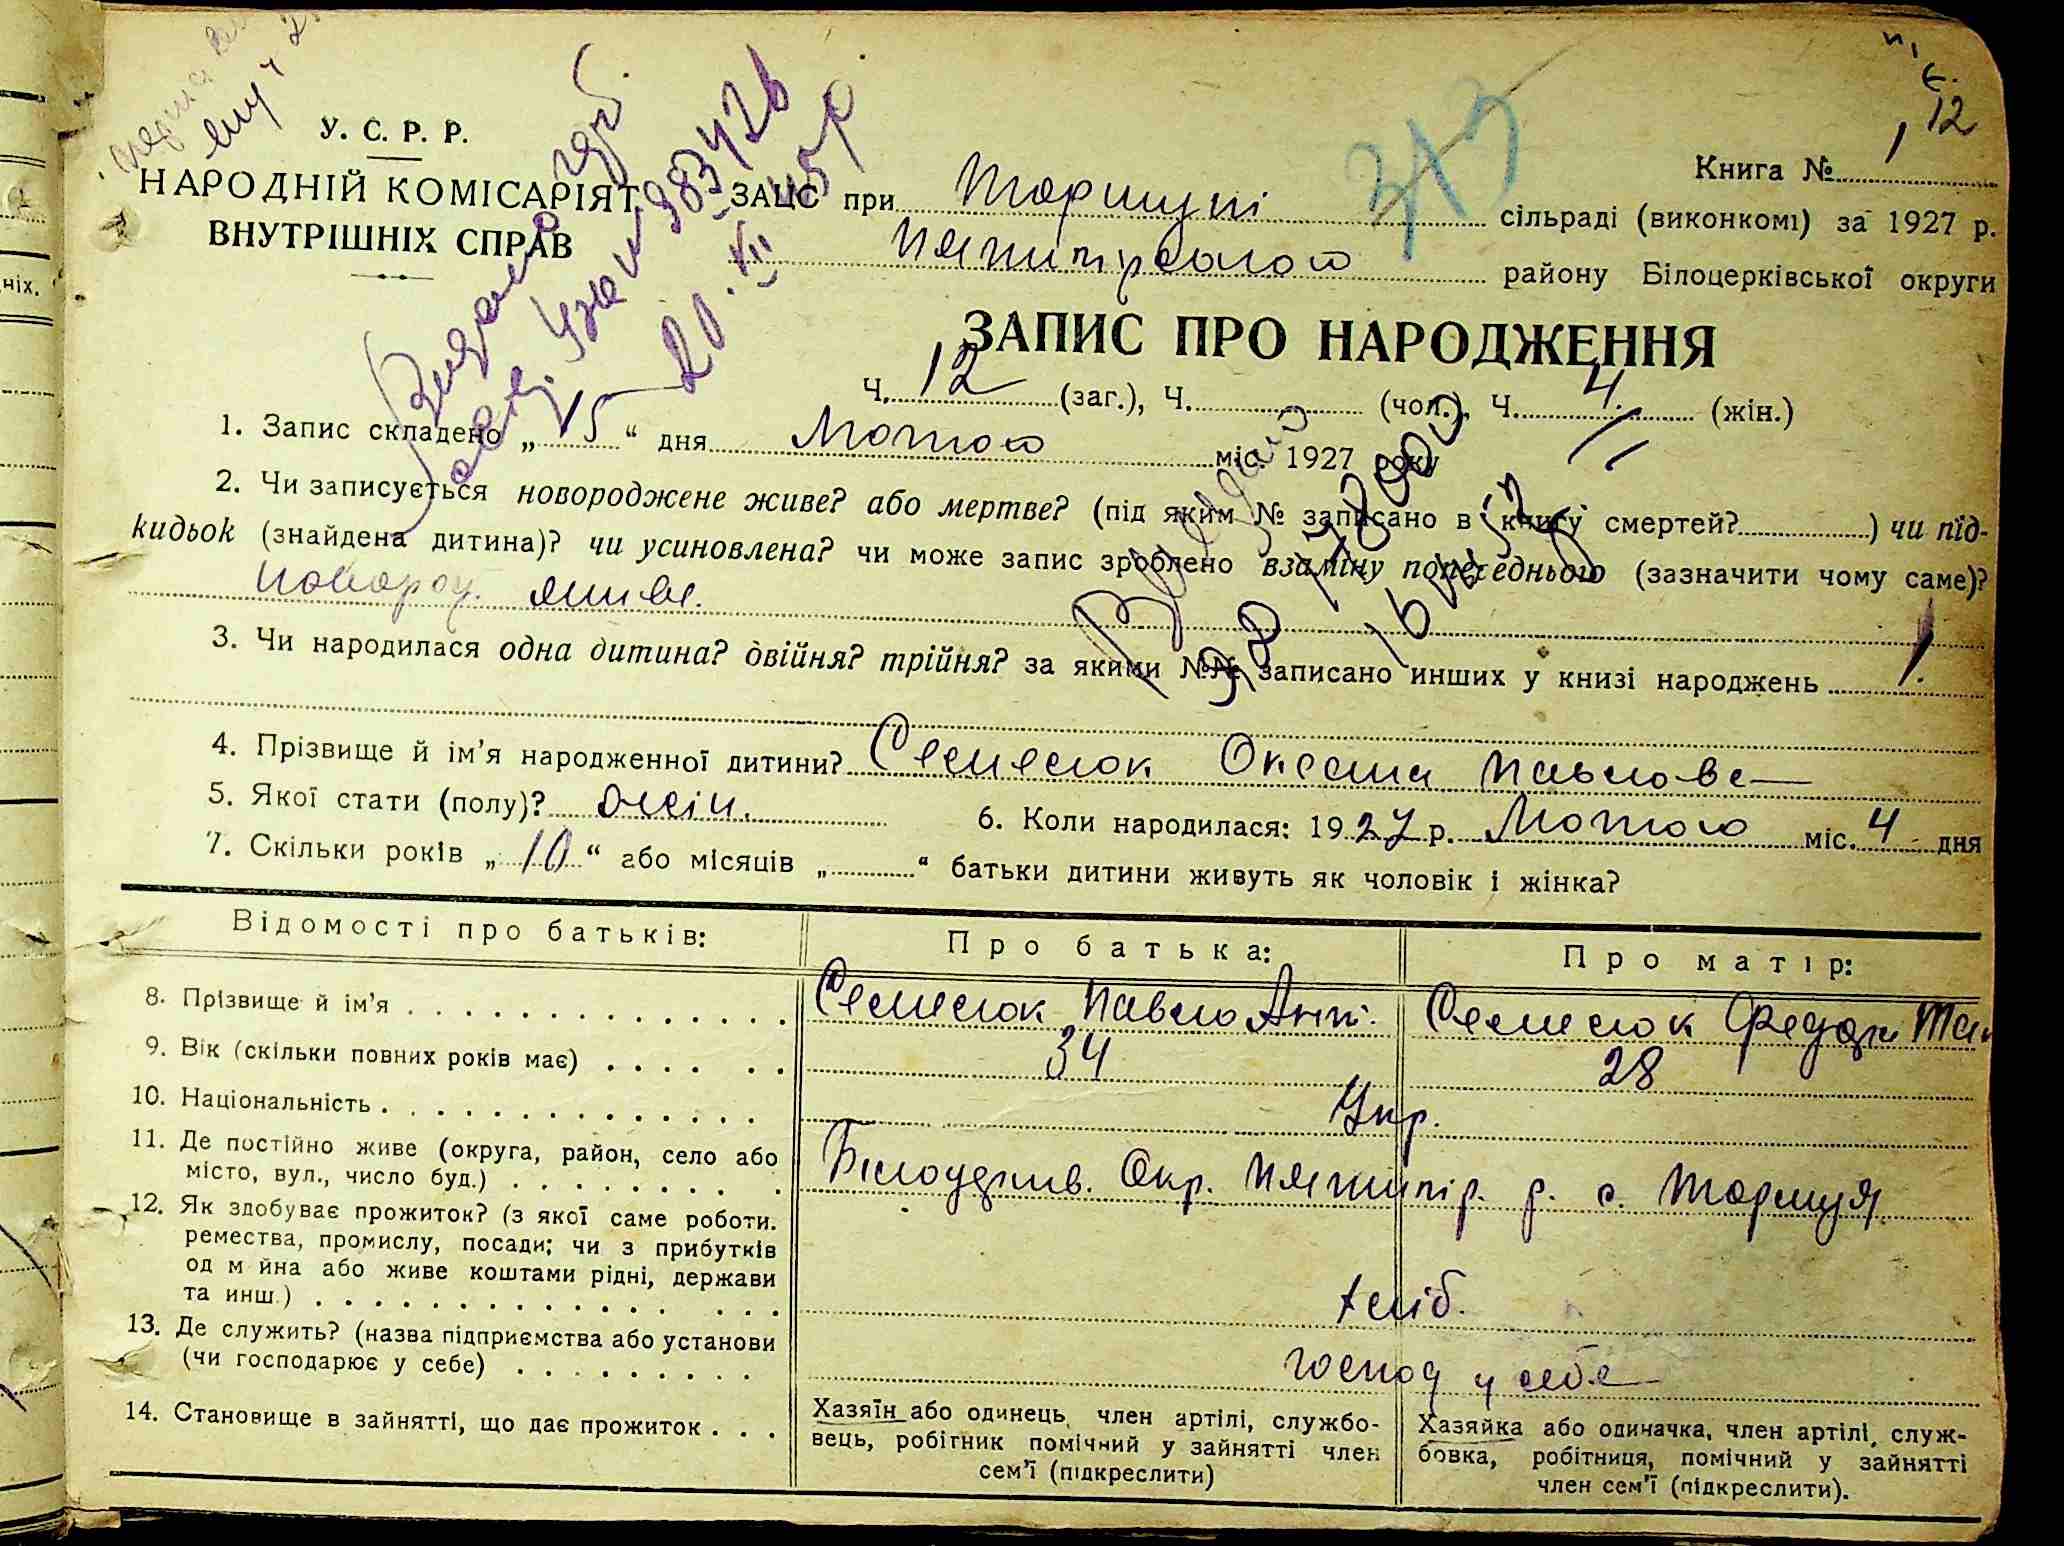 У. С. Р. Р.
НАРОДНІЙ КОМІСАРІЯТ
ВНУТРІШНІХ СПРАВ
12
Книга № 1
ЗАЦС при Торчиці сільраді (виконкомі) за 1927 р.
Пятигірського району Білоцерківської округи
Видано
20. VII 45 р.
ЗАПИС ПРО НАРОДЖЕННЯ
Ч. 12 (заг.), Ч. (чол.), Ч. 4 (жін.)
1. Запис складено „ 15 “ дня Лютого міс. 1927 року
2. Чи записується новороджене живе? або мертве? (під яким № записано в книгу смертей? ) чи під-
кидьок (знайдена дитина)? чи усиновлена? чи може запис зроблено взаміну попереднього (зазначити чому саме)?
новород. живе.
3. Чи народилася одна дитина? двійня? трійня? за якими №№ записано инших у книзі народжень 1.
4. Прізвище й ім’я народженної дитини? Семесюк Оксана Павлова
5. Якої стати (полу)? жін. 6. Коли народилася: 1927 р. Лютого міс. 4 дня
7. Скільки років „ 10 “ або місяців „ “ батьки дитини живуть як чоловік і жінка?
Відомості про батьків: Про батька: Про матір:
8. Прізвище й ім’я Семесюк Павло Ант. Семесюк
9. Вік (скільки повних років має) 34 28
10. Національність Укр.
11. Де постійно живе (округа, район, село або
місто, вул., число буд.) Білоцерків. Окр. Пятигір. р. с. Торчиця
12. Як здобуває прожиток? (з якої саме роботи.
ремества, промислу, посади; чи з прибутків
од м йна або живе коштами рідні, держави
та инш.) хліб.
13. Де служить? (назва підприємства або установи
(чи господарює у себе) господ у себе
14. Становище в зайнятті, що дає прожиток
Хазяїн або одинець, член артілі, службо-
вець, робітник помічний у зайнятті член
сем’ї (підкреслити)
Хазяйка або одиначка, член артілі, служ-
бовка, робітниця, помічний у зайнятті
член сем’ї (підкреслити).